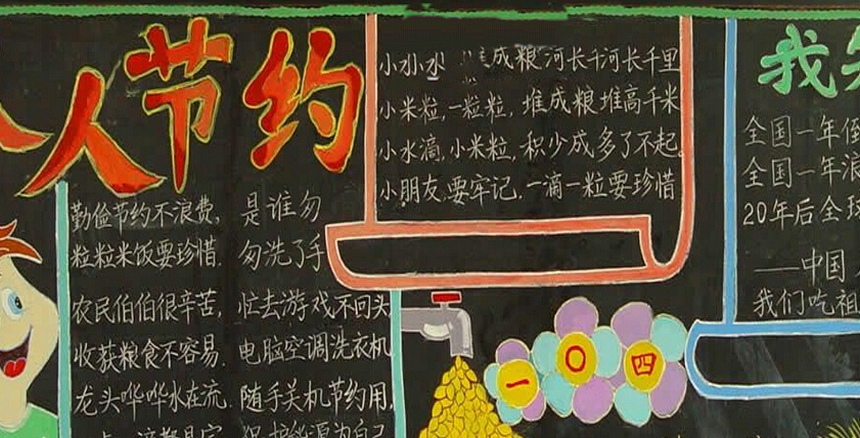 人人节约
勤俭节约不浪费,
粒粒米饭要珍惜.
农民伯伯很辛苦,
收获粮食不容易.
龙头哗哗水在流
是谁勿
匆洗了手
忙去游戏不回头
电脑空调洗衣机
随手关机节约用,
小小水 成粮河长千河长千里
小米粒,一粒粒,堆成粮堆高千米
小水滴,小米粒,积少成多了不起。
小朋友,要牢记,一滴一粒要珍惜
一〇四
我
全国一年
全国一年浪
20年后全球
——中国
我们吃祖